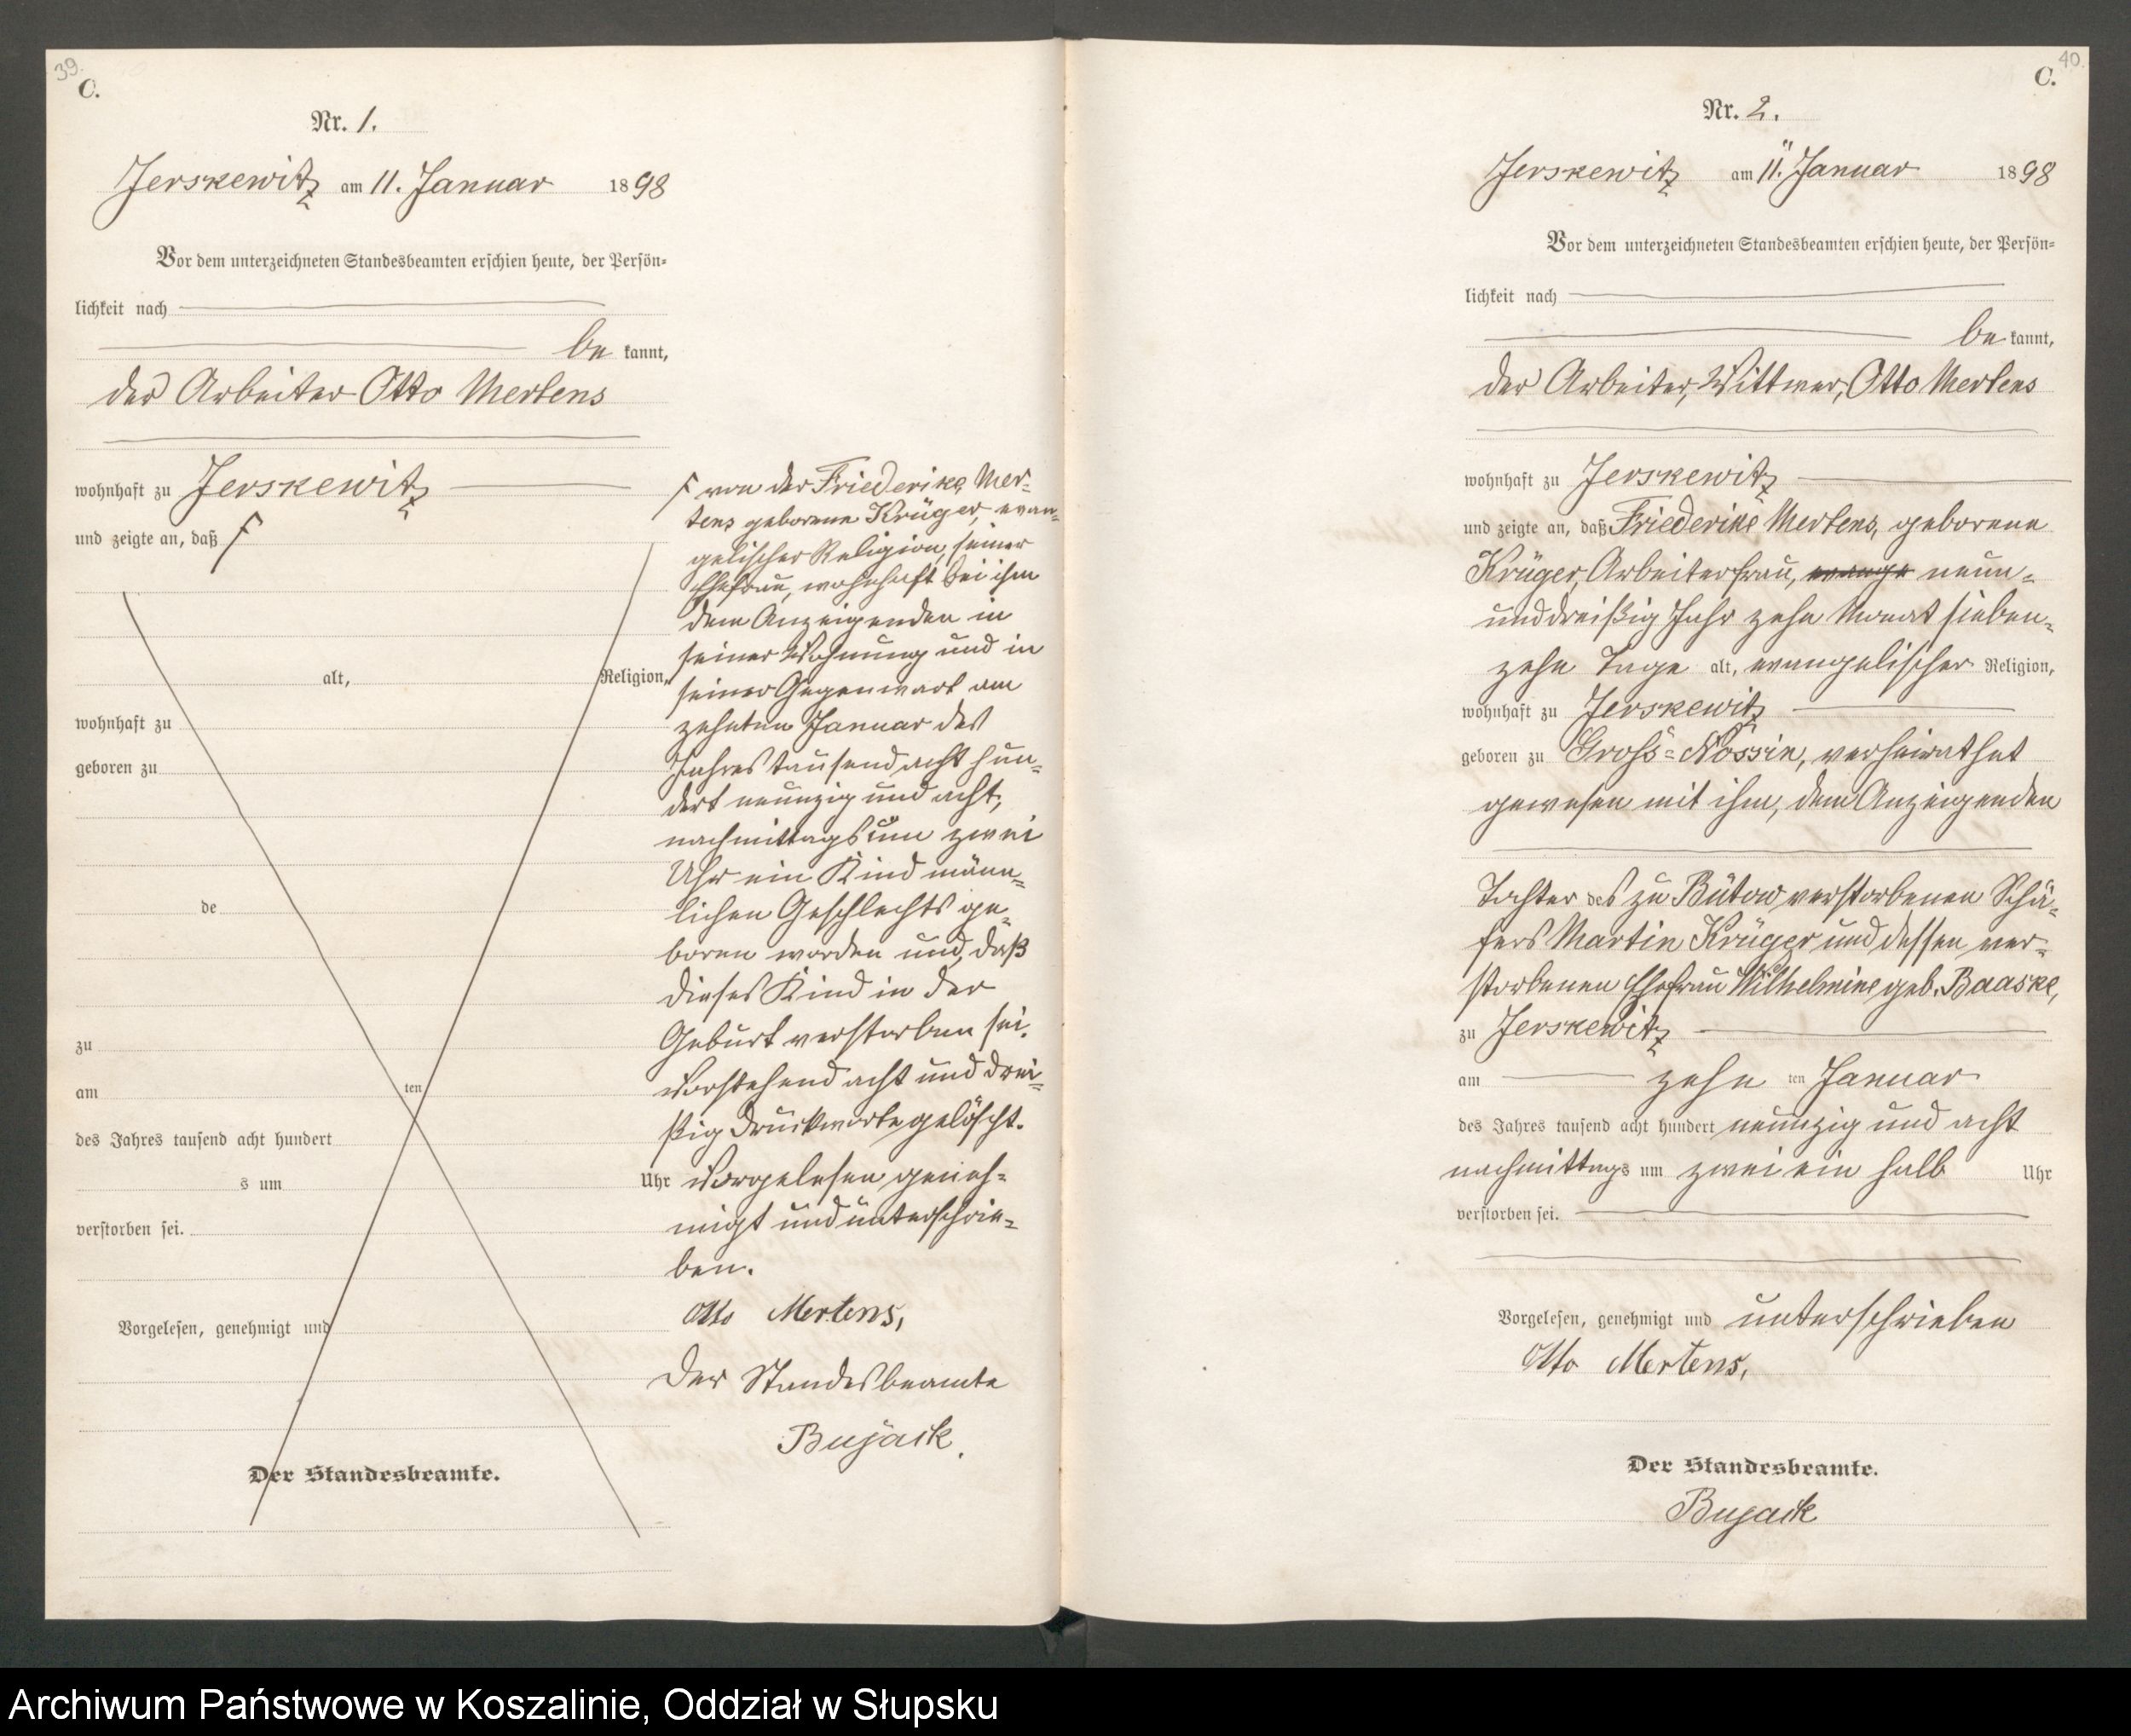 39.
C.
Nr. 1.
Jerskewitz am 11. Januar 1898
Vor dem unterzeichneten Standesbeamten erschien heute, der Persön-
lichkeit nach
be kannt,
der Arbeiter Otto Mertens
wohnhaft zu Jerskewitz
und zeigte an, daß
alt, Religion,
wohnhaft zu
geboren zu
de
zu
am ten
des Jahres tausend acht hundert
s um Uhr
verstorben sei.
Vorgelesen, genehmigt und
Der Standesbeamte.
von der Friederike Mer-
tens geborene Krüger, evan-
gelischer Religion, seiner
Ehefrau, wohnhaft bei ihm
dem Anzeigenden in
seiner Wohnung und in
seiner Gegenwart am
zehnten Januar des
Jahres tausend acht hun-
dert neunzig und acht,
nachmittags um zwei
Uhr ein Kind männ-
lichen Geschlechts ge-
boren worden und, daß
dieses Kind in der
Geburt verstorben sei.
Vorstehend acht und drei-
ßig Druckworte gelöscht.
Vorgelesen geneh-
migt und unterschrie-
ben.
Otto Mertens,
Der Standesbeamte
Bujack
40.
C.
Nr. 2.
Jerskewitz am 11. Januar 1898
Vor dem unterzeichneten Standesbeamten erschien heute, der Persön-
lichkeit nach
be kannt,
der Arbeiter, Wittwer, Otto Mertens
wohnhaft zu Jerskewitz
und zeigte an, daß Friederike Mertens, geborene
Krüger, Arbeiterfrau, evange neun-
unddreißig Jahr zehn Monat sieben-
zehn Tage alt, evangelischer Religion,
wohnhaft zu Jerskewitz
geboren zu Groß-Nossin, verheirathet
gewesen mit ihm, dem Anzeigenden
Tochter des zu Bütow verstorbenen Schä-
fers Martin Krüger und dessen ver-
storbenen Ehefrau Wilhelmine geb. Baaske,
zu Jerskewitz
am zehn ten Januar
des Jahres tausend acht hundert neunzig und acht
nachmittags um zwei ein halb Uhr
verstorben sei.
Vorgelesen, genehmigt und unterschrieben
Otto Mertens,
Der Standesbeamte.
Bujack
Archiwum Państwowe w Koszalinie, Oddział w Słupsku